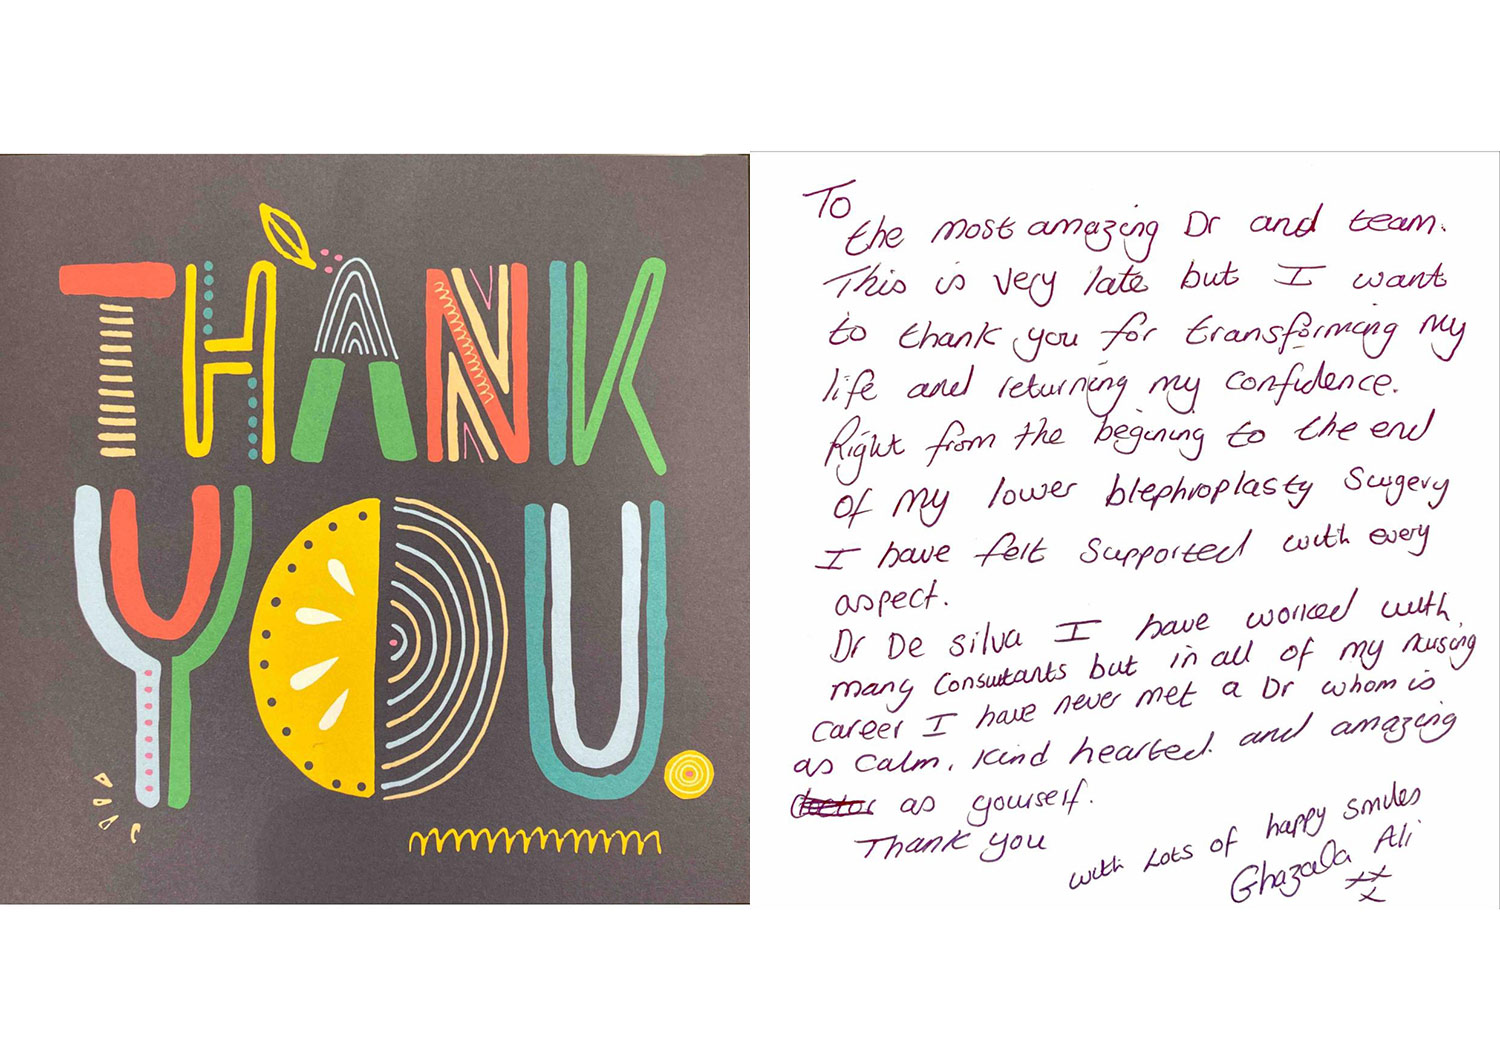 THANK
YOU.
To
the most amazing Dr and team.
This is very late but I want
to thank you for transforming my
life and returning my confidence.
Right from the begining to the end
of my lower blephroplasty Surgery
I have felt supported with every
aspect.
Dr De silva I have worked with
many Consultants but in all of my nursing
career I have never met a Dr whom is
as calm, kind hearted and amazing
as yourself.
Thank you
with Lots of happy smiles
Ghazala Ali
xx
x